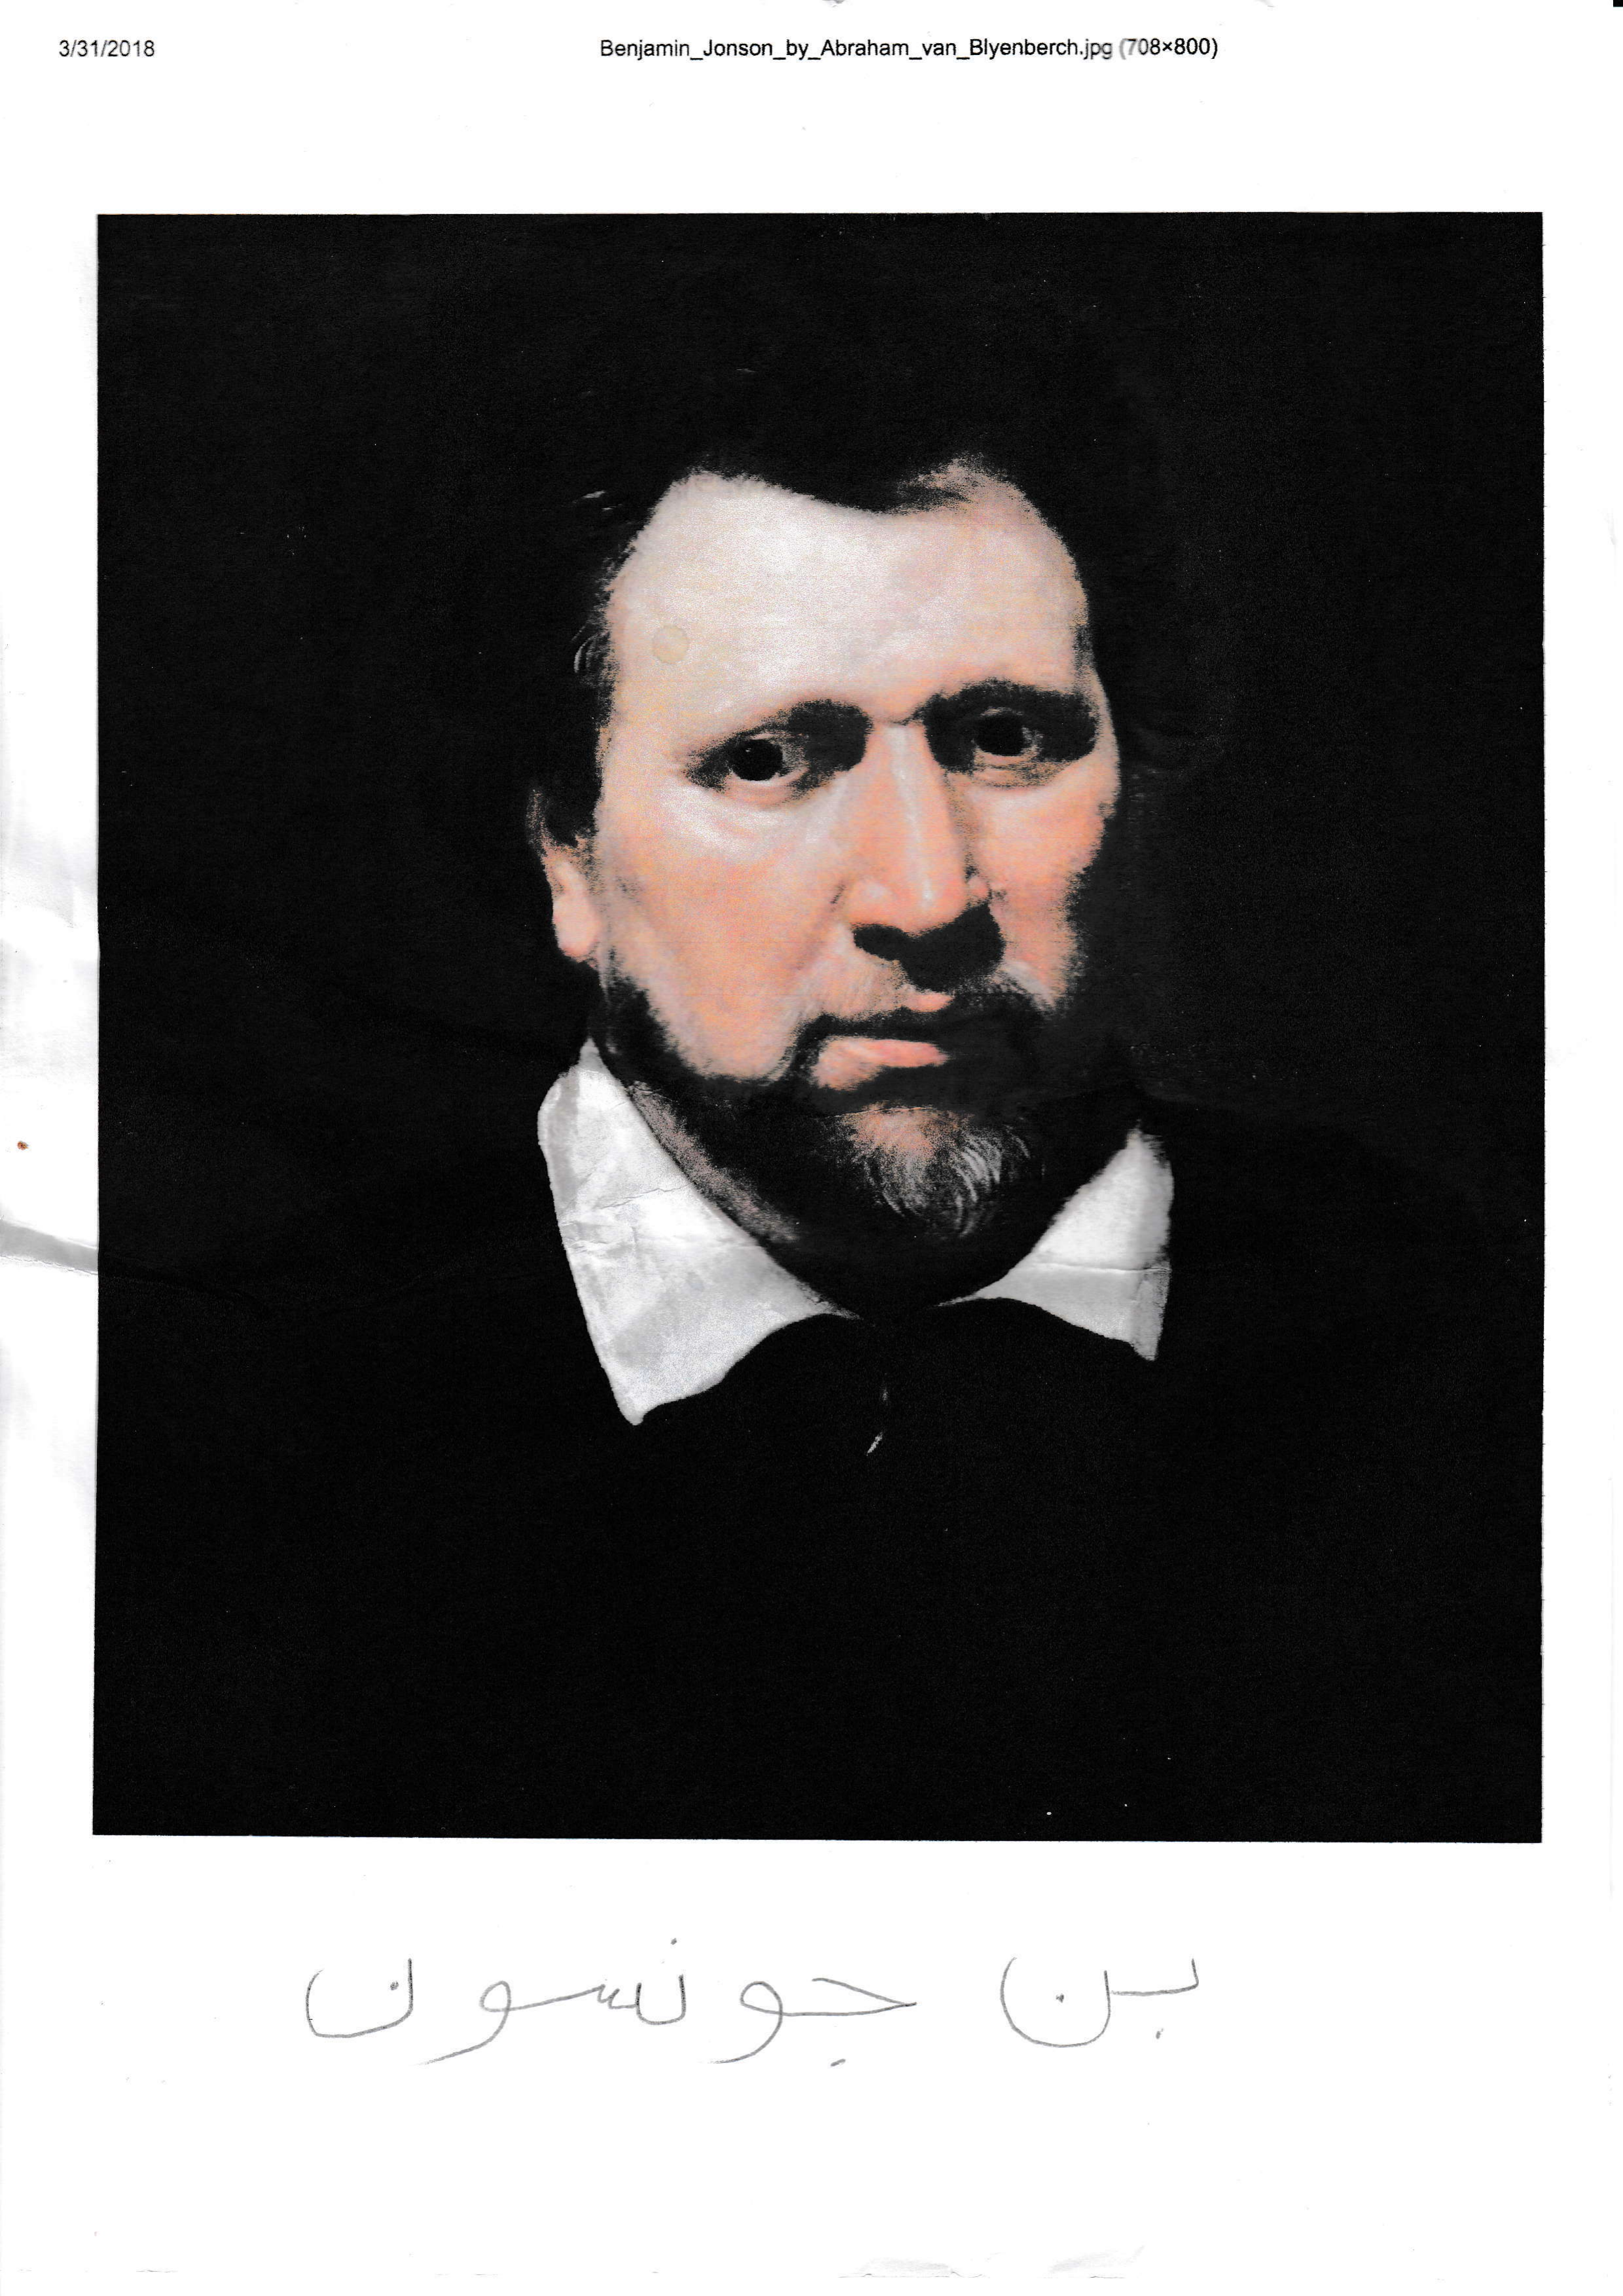 3/31/2018 Benjamin_Jonson_by_Abraham_van_Blyenberch.jpg (708×800)
بن جونسون